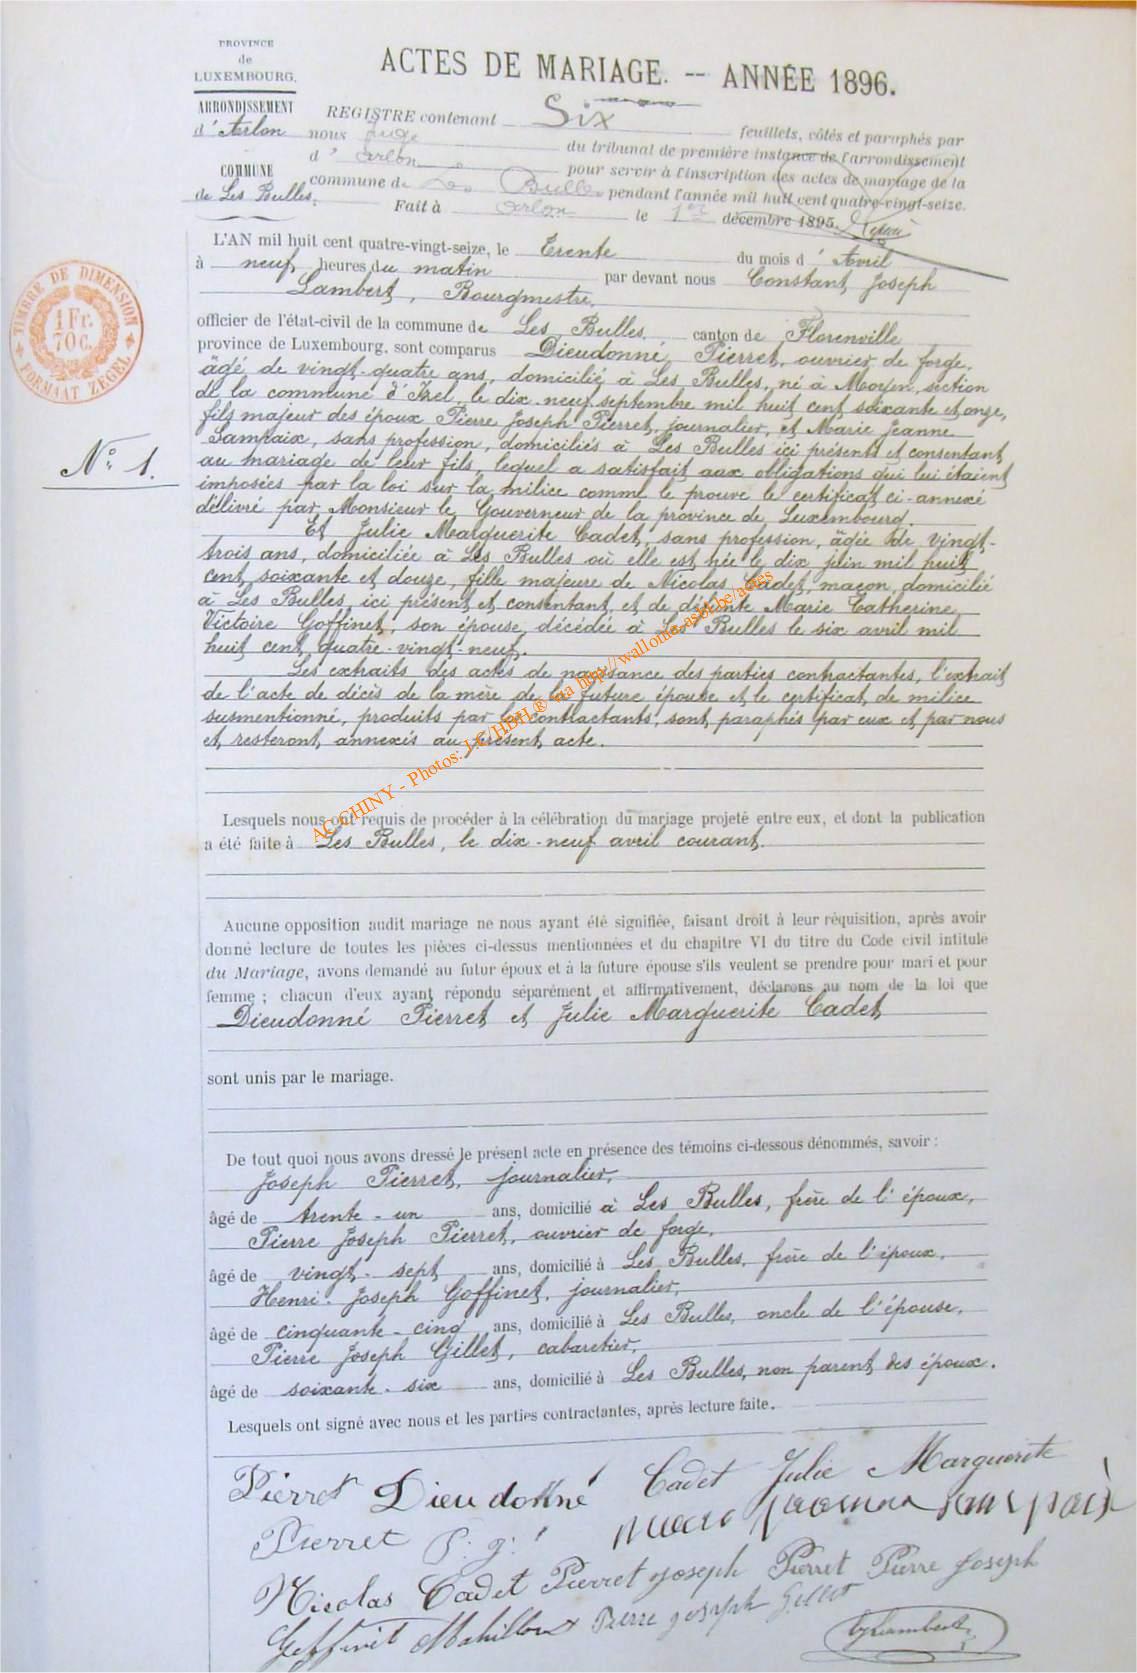 PROVINCE
de
LUXEMBOURG.
ARRONDISSEMENT
d'Arlon
COMMUNE
de Les Bulles.
ACTES DE MARIAGE. -- ANNÉE 1896.
REGISTRE contenant Six feuillets, côtés et paraphés par
nous Juge du tribunal de première instance de l'arrondissement
d'Arlon pour servir à l'inscription des actes de mariage de la
commune de Les Bulles pendant l'année mil huit cent quatre-vingt-seize.
Fait à Arlon le 1er décembre 1895.
TIMBRE DE DIMENSION
1 Fr.
70 c.
FORMAAT ZEGEL
N° 1.
L'AN mil huit cent quatre-vingt-seize, le Trente du mois d'Avril
à neuf heures du matin par devant nous Constant Joseph
Lambert, Bourgmestre,
officier de l'état-civil de la commune de Les Bulles, canton de Florenville
province de Luxembourg, sont comparus Dieudonné Pierret, ouvrier de forge,
âgé de vingt-quatre ans, domicilié à Les Bulles, né à Moyen, section
de la commune d'Izel, le dix-neuf septembre mil huit cent soixante et onze,
fils majeur des époux Pierre Joseph Pierret, journalier, et Marie Jeanne
Lampaix, sans profession, domiciliés à Les Bulles ici présents et consentant
au mariage de leur fils, lequel a satisfait aux obligations qui lui étaient
imposées par la loi sur la milice comme le prouve le certificat ci-annexé
délivré par Monsieur le Gouverneur de la province de Luxembourg.
Et Julie Marguerite Cadet, sans profession, âgée de vingt-
trois ans, domiciliée à Les Bulles où elle est née le dix juin mil huit
cent soixante et douze, fille majeure de Nicolas Cadet, maçon, domicilié
à Les Bulles, ici présent et consentant, et de défunte Marie Catherine
Victoire Goffinet, son épouse, décédée à Les Bulles le six avril mil
huit cent quatre-vingt-neuf.
Les extraits des actes de naissance des parties contractantes, l'extrait
de l'acte de décès de la mère de la future épouse et le certificat de milice
susmentionné, produits par les contractants, sont paraphés par eux et par nous
et resteront annexés au présent acte.
AC CHINY - Photos: J.C/HBH® via http://wallonie.asbl.be/actes
Lesquels nous ont requis de procéder à la célébration du mariage projeté entre eux, et dont la publication
a été faite à Les Bulles, le dix-neuf avril courant.
Aucune opposition audit mariage ne nous ayant été signifiée, faisant droit à leur réquisition, après avoir
donné lecture de toutes les pièces ci-dessus mentionnées et du chapitre VI du titre du Code civil intitulé
du Mariage, avons demandé au futur époux et à la future épouse s'ils veulent se prendre pour mari et pour
femme ; chacun d'eux ayant répondu séparément et affirmativement, déclarons au nom de la loi que
Dieudonné Pierret et Julie Marguerite Cadet
sont unis par le mariage.
De tout quoi nous avons dressé le présent acte en présence des témoins ci-dessous dénommés, savoir :
Joseph Pierret, journalier,
âgé de trente-un ans, domicilié à Les Bulles, frère de l'époux,
Pierre Joseph Pierret, ouvrier de forge,
âgé de vingt-sept ans, domicilié à Les Bulles, frère de l'époux,
Henri-Joseph Goffinet, journalier,
âgé de cinquante-cinq ans, domicilié à Les Bulles, oncle de l'épouse,
Pierre Joseph Gillet, cabaretier,
âgé de soixante-six ans, domicilié à Les Bulles, non parent des époux.
Lesquels ont signé avec nous et les parties contractantes, après lecture faite.
Pierret Dieudonné Cadet Julie Marguerite
Pierret P. J.
Nicolas Cadet Pierret Joseph Pierret Pierre Joseph
Goffinet Pierre Joseph Gillet CJLambert